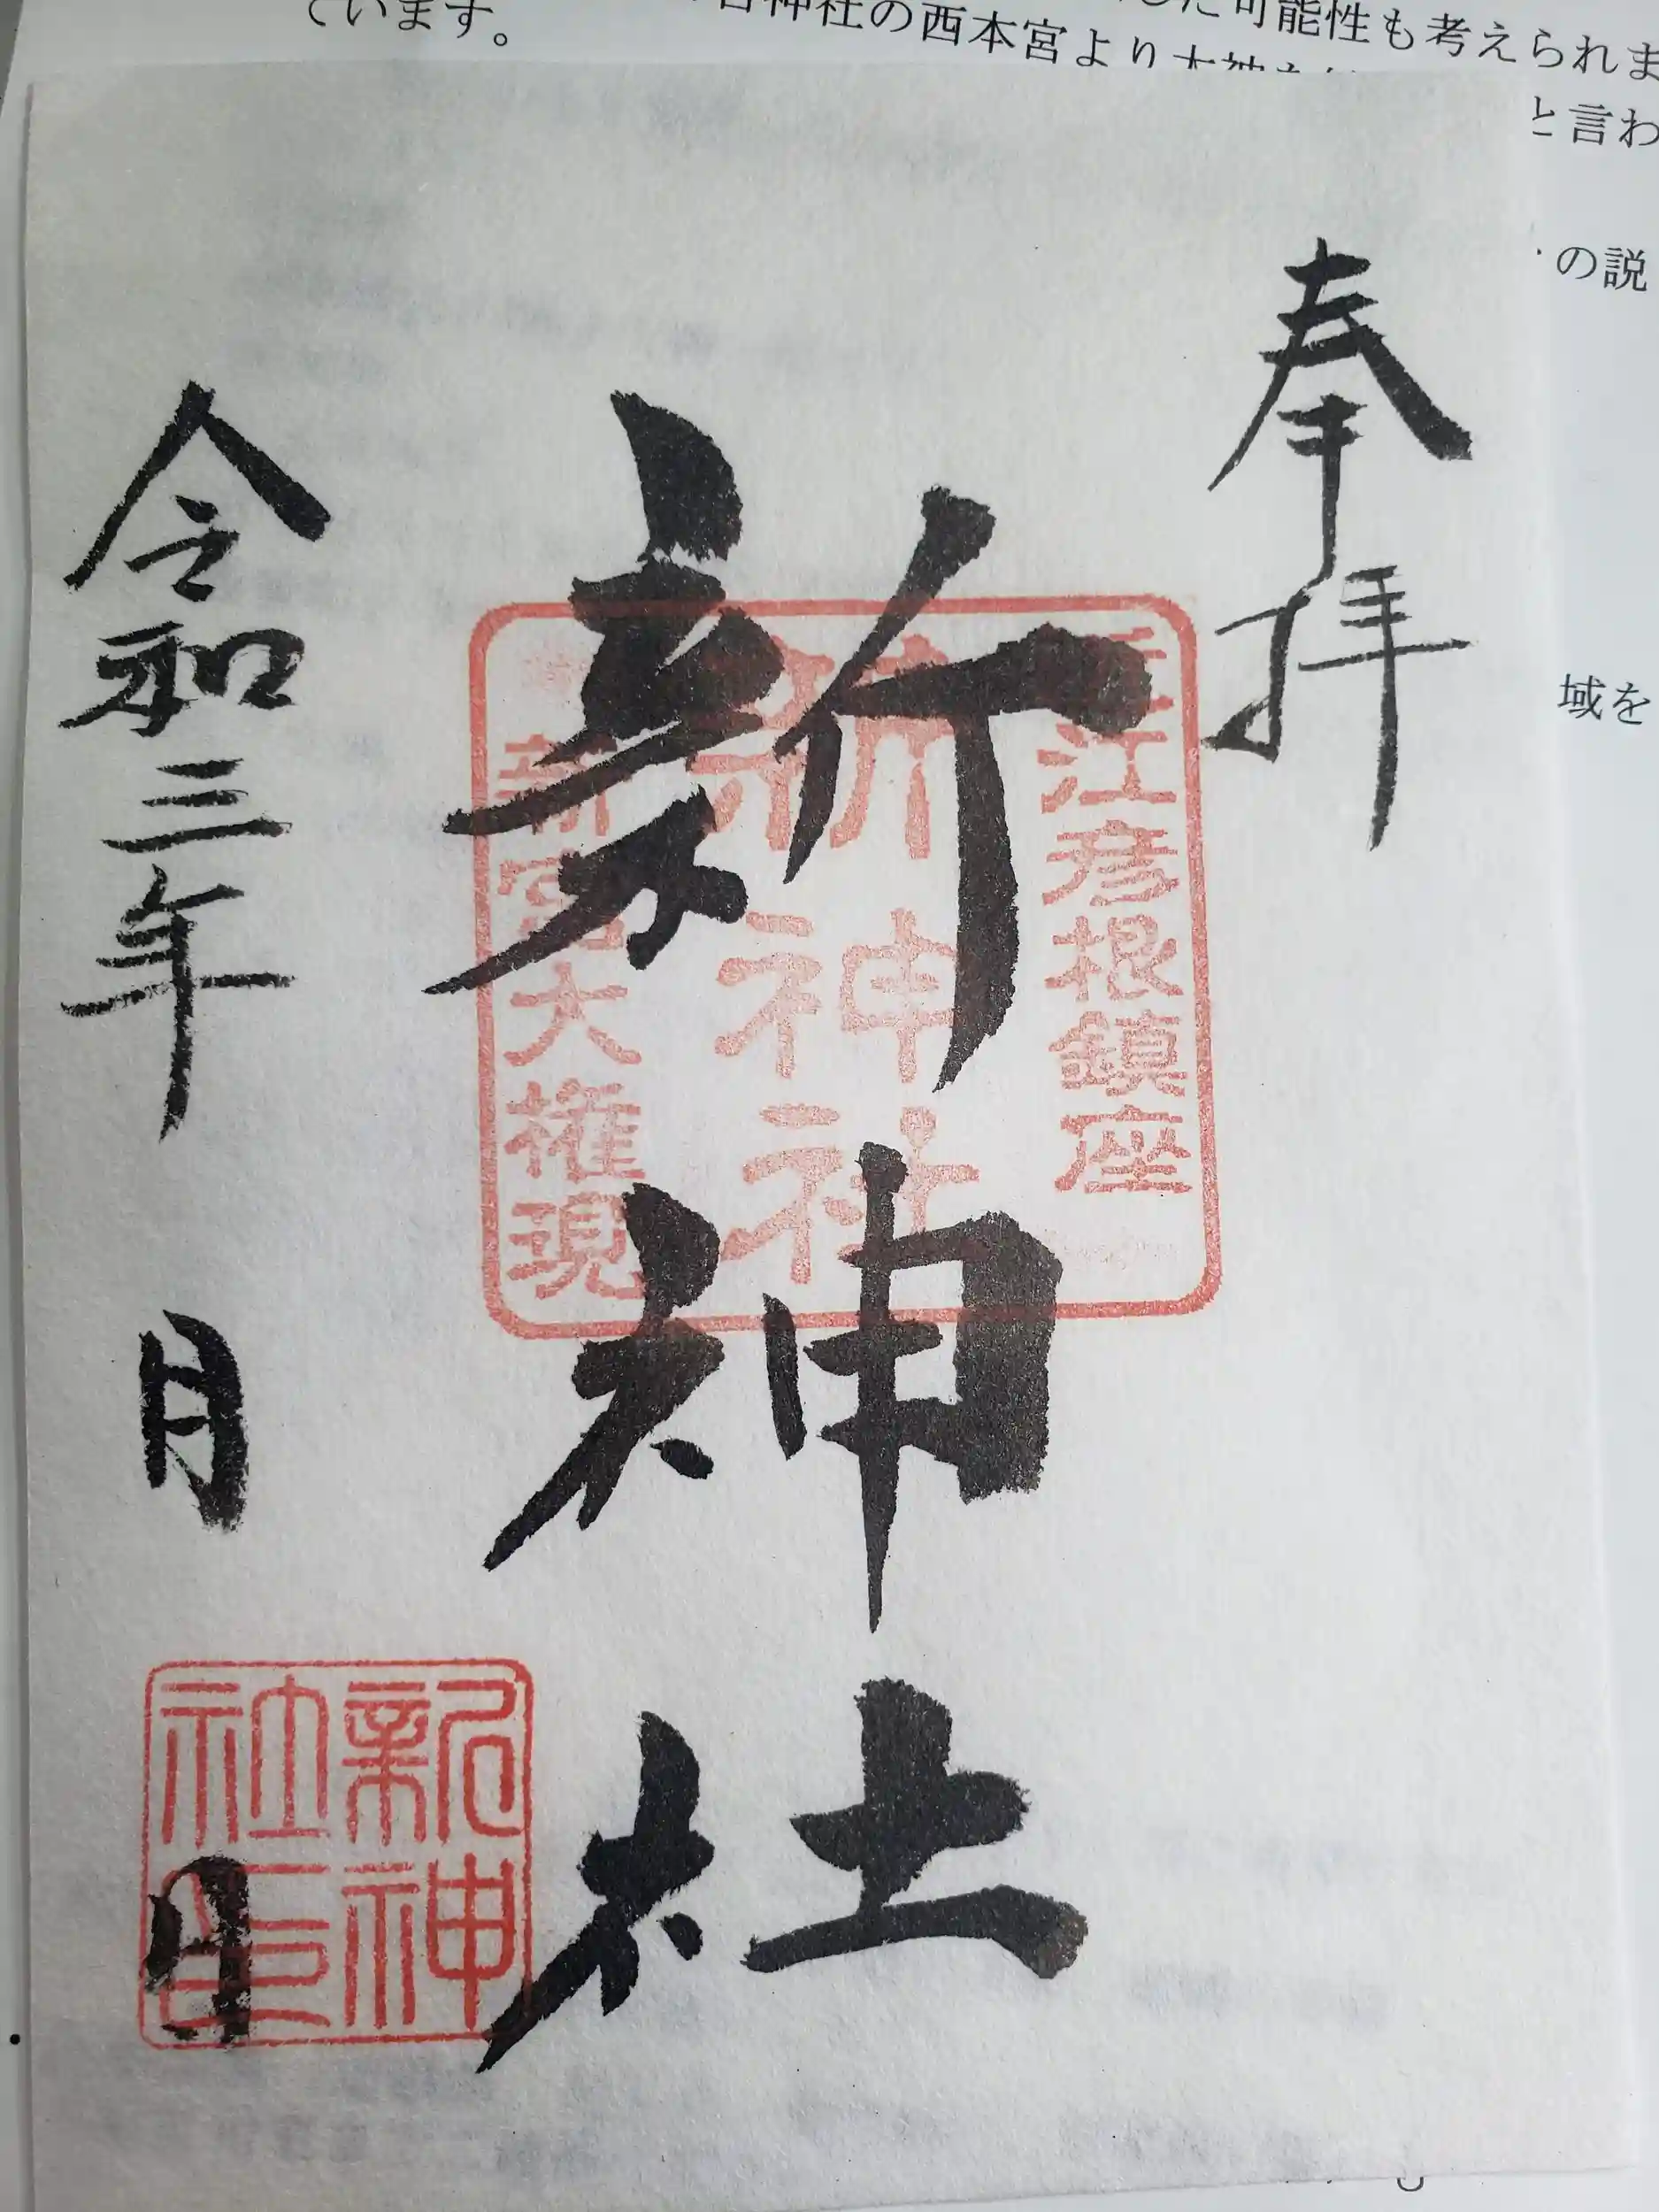 ています。
神社の西本宮より大神を
た可能性も考えられま
と言わ
の説
域を
奉拝
新神社
令和三年 月 日
近江彦根鎮座
新神社
新宮大権現
新神
社印